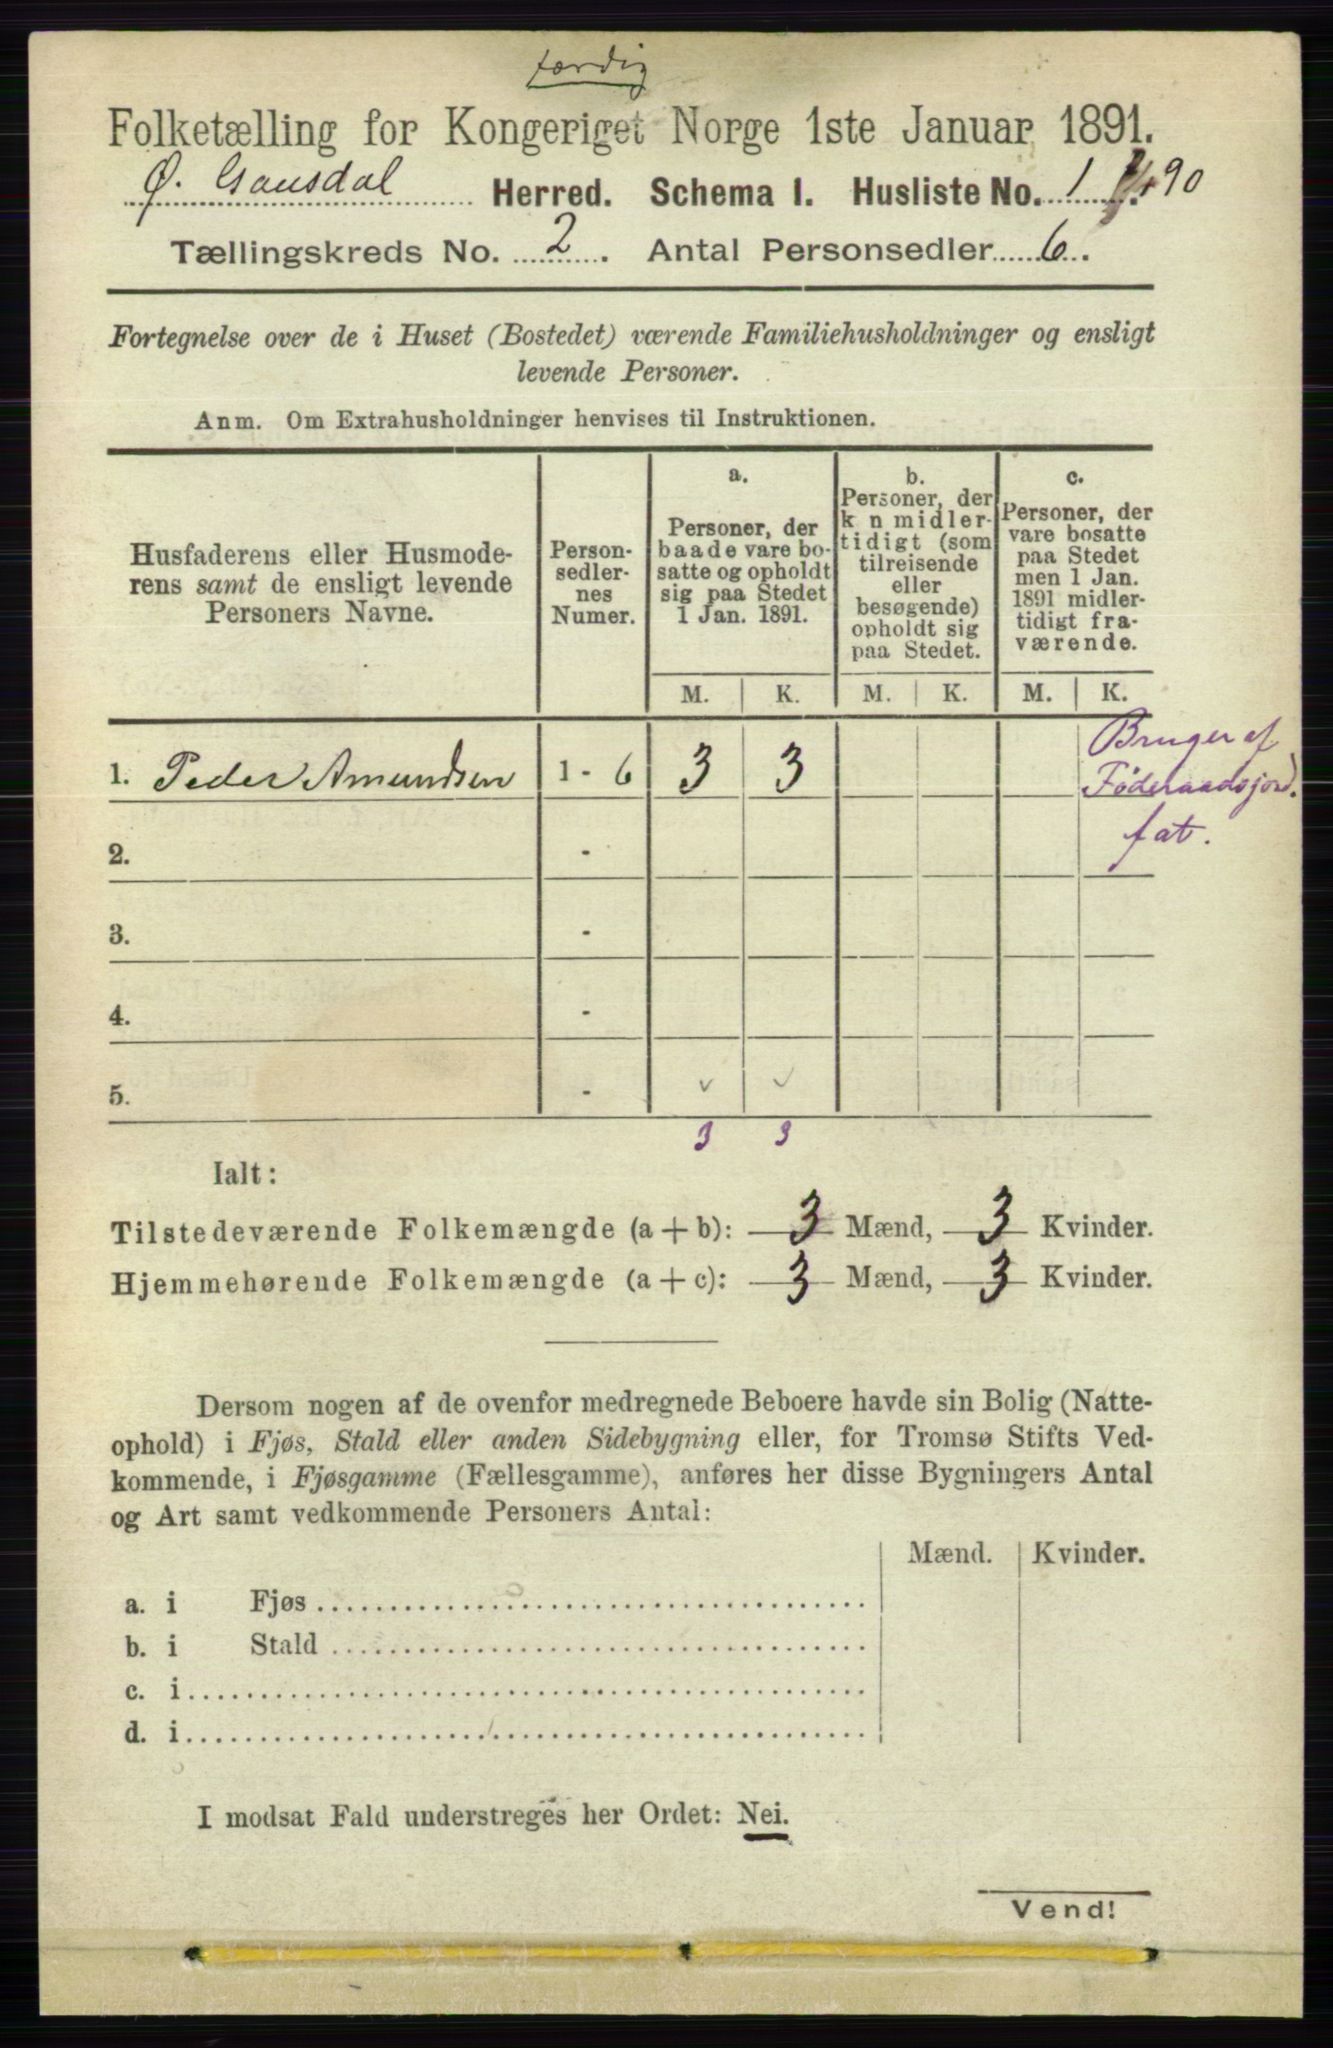 færdig
Folketælling for Kongeriget Norge 1ste Januar 1891.
Ø. Gausdal Herred. Schema I. Husliste No. 1 90
Tællingskreds No. 2. Antal Personsedler 6.
Fortegnelse over de i Huset (Bostedet) værende Familiehusholdninger og ensligt
levende Personer.
Anm. Om Extrahusholdninger henvises til Instruktionen.
Husfaderens eller Husmode-
rens samt de ensligt levende
Personers Navne.
Person-
sedler-
nes
Numer.
a.
Personer, der
baade vare bo-
satte og opholdt
sig paa Stedet
1 Jan. 1891.
b.
Personer, der
k n midler-
tidigt (som
tilreisende
eller
besøgende)
opholdt sig
paa Stedet.
c.
Personer, der
vare bosatte
paa Stedet
men 1 Jan.
1891 midler-
tidigt fra-
værende.
M. K. M. K. M. K.
1. Peder Amundsen 1 - 6 3 3
Bruger af
Föderaadsjord.
fat.
2. -
3. -
4. -
5. -
3 3
Ialt:
Tilstedeværende Folkemængde (a + b): 3 Mænd, 3 Kvinder.
Hjemmehørende Folkemængde (a + c): 3 Mænd, 3 Kvinder.
Dersom nogen af de ovenfor medregnede Beboere havde sin Bolig (Natte-
ophold) i Fjøs, Stald eller anden Sidebygning eller, for Tromsø Stifts Ved-
kommende, i Fjøsgamme (Fællesgamme), anføres her disse Bygningers Antal
og Art samt vedkommende Personers Antal:
Mænd. Kvinder.
a. i Fjøs
b. i Stald
c. i
d. i
I modsat Fald understreges her Ordet: Nei.
Vend!